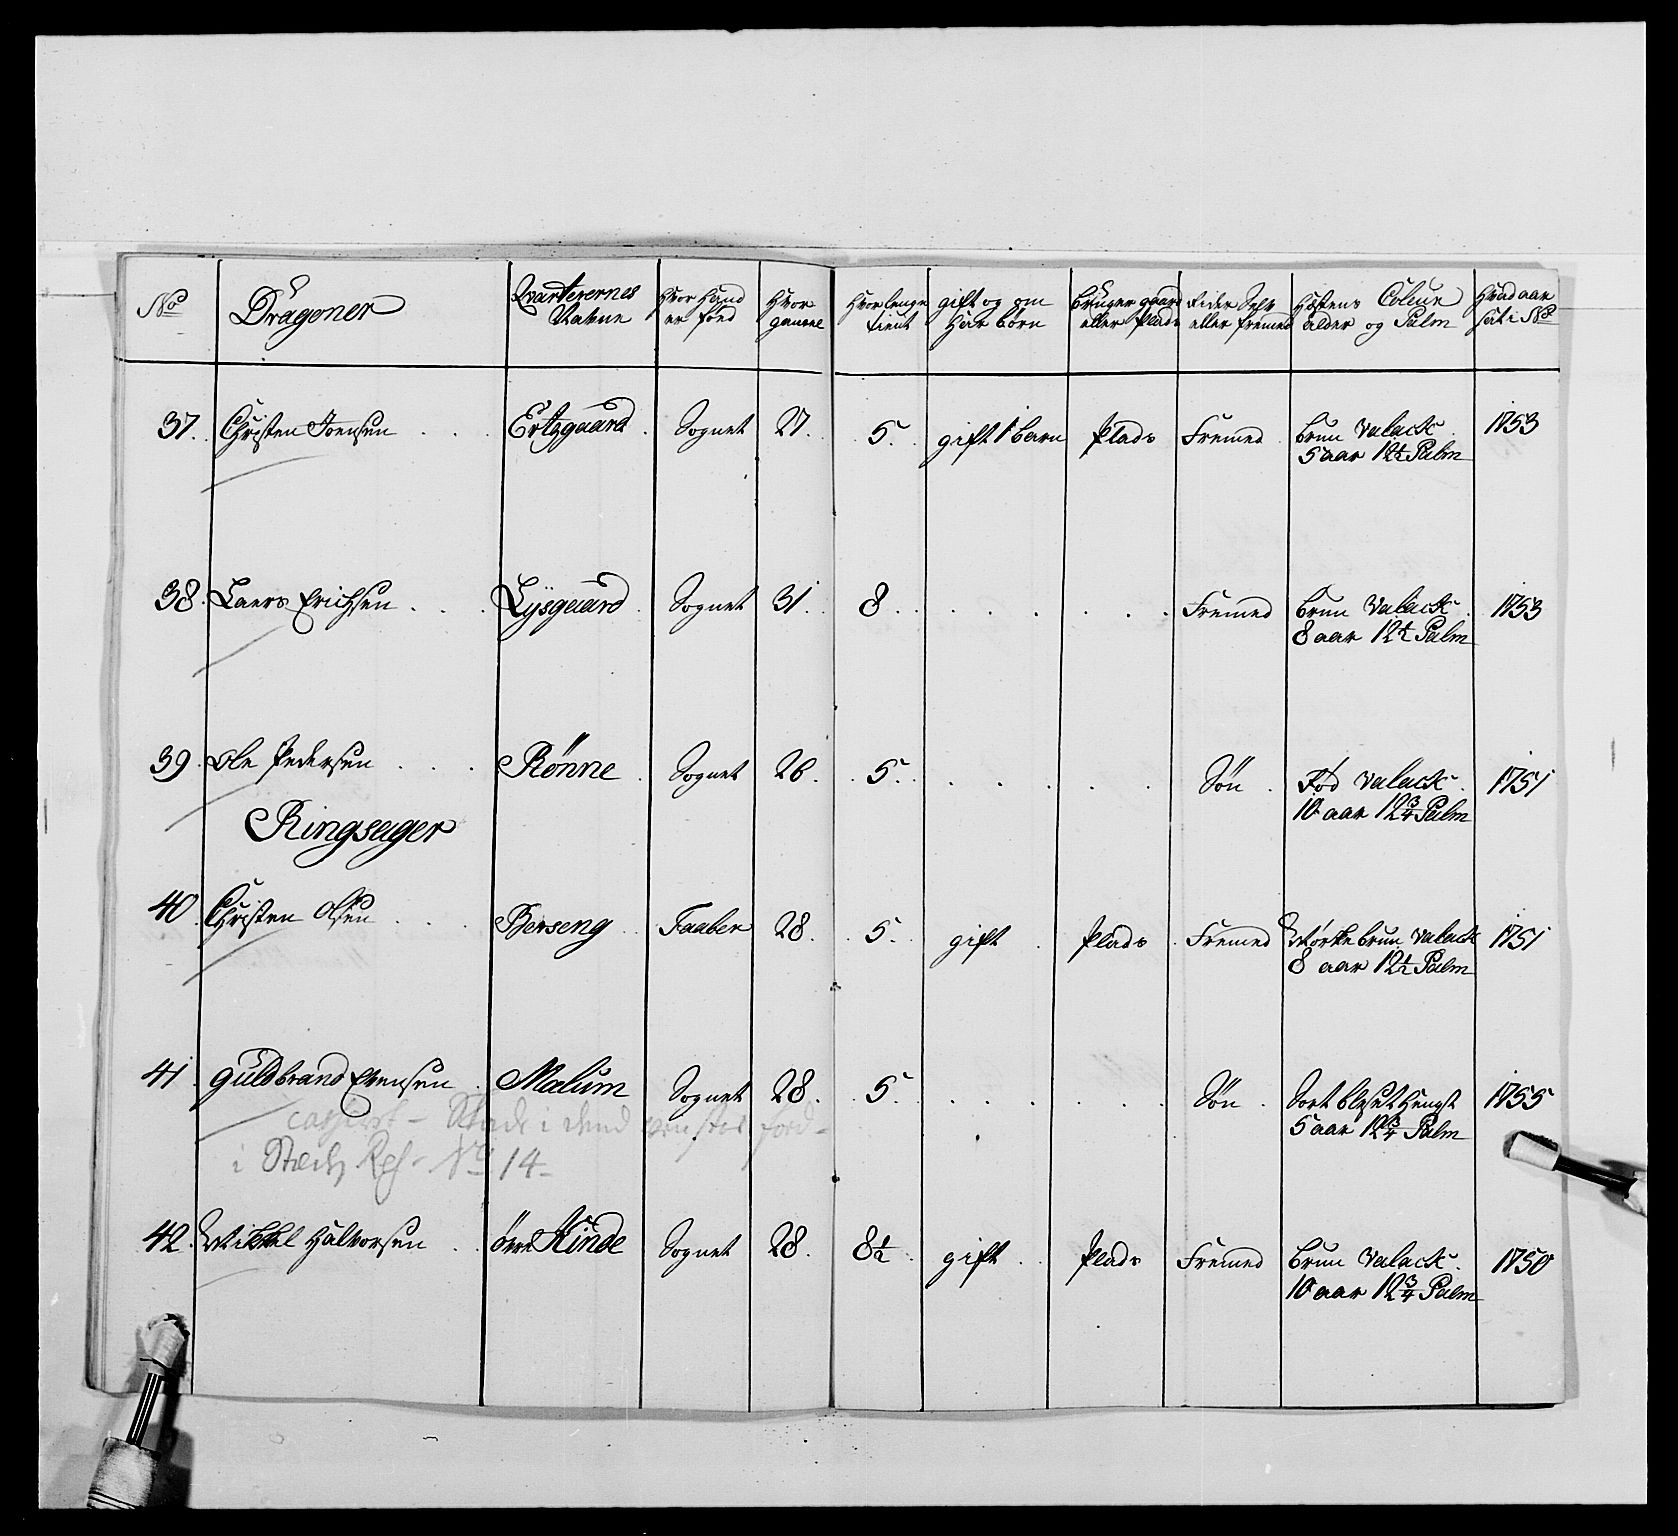 No Dragoner Qvarterernes Navne Hvor Hand er Född Hvor gammel Hvor lenge tient gift og om Har börn Bruger gaard eller Plads Rider Sielv eller fremed Hæstens Coleur alder og Palm Hvad aar sat i No
37. Christen Joensen Ertzgaard Sognet 27. 5. gift 1 barn Plads Fremed brun Valack
5 aar 12½ Palm 1753
38. Laers Erichsen Lysgaard Sognet 31. 8. Fremed brun Valack
8 aar 12½ Palm 1753
39. Ole Pedersen Rönne Sognet 26. 5. Sön Rød Valack
10 aar 12¾ Palm 1751
Ringsager
40. Christen Olsen Berseng Faaber 28. 5. gift Plads Fremed Mörkebrun Valack
8 aar 12½ Palm 1751
41. Guldbrand Evensen Malum Sognet 28. 5. Sön Sort bleset Hengst
5 aar 12¾ Palm 1755
i dend
i No 14
42. Mikkel Halvorsen övre Kinde Sognet 28. 8½ gift Plads Fremed brun Valack
10 aar 12¾ Palm 1750